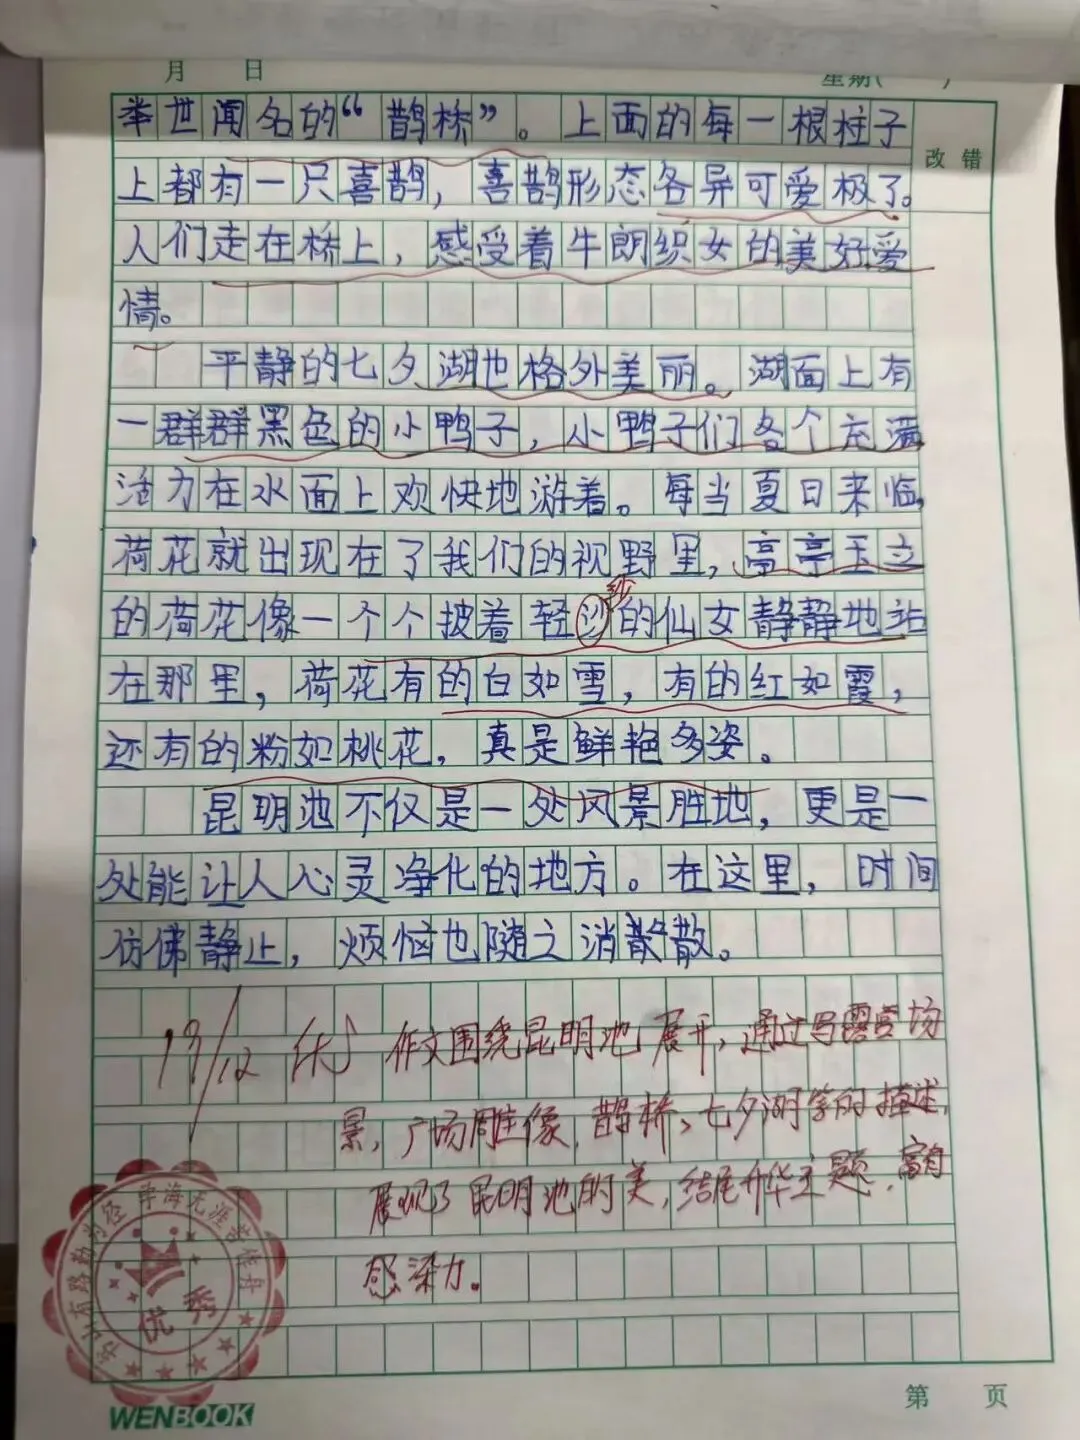 月 日 星期( )
举世闻名的“鹊桥”。上面的每一根柱子
改错
上都有一只喜鹊，喜鹊形态各异可爱极了。
人们走在桥上，感受着牛朗织女的美好爱
情。
平静的七夕湖也格外美丽。湖面上有
一群群黑色的小鸭子，小鸭子们各个充满
活力在水面上欢快地游着。每当夏日来临，
荷花就出现在了我们的视野里，亭亭玉立
纱
的荷花像一个个披着轻沙的仙女静静地站
在那里，荷花有的白如雪，有的红如霞，
还有的粉如桃花，真是鲜艳多姿。
昆明池不仅是一处风景胜地，更是一
处能让人心灵净化的地方。在这里，时间
仿佛静止，烦恼也随之消散散。
19/12 优 作文围绕昆明池展开，通过写露营场
景，广场雕像，鹊桥、七夕湖等的描述，
展现了昆明池的美，结尾升华主题，富有
感染力。
书山有路勤为径 学海无涯苦作舟
优秀
WENBOOK
第 页